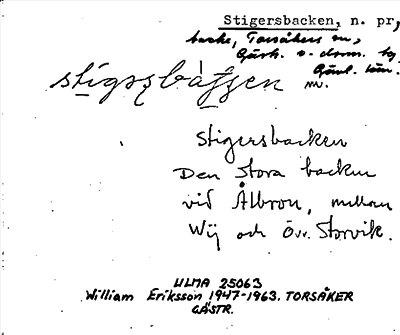 Stigersbacken, n. pr,
backe, Torsåkers sn,
Gästr. ö. dom. hg
Gävl. län.
stigæșbàțșen mv.
Stigersbacken
Den stora backen
vid Ålbron, mellan
Wij och Öv. Storvik.
ULMA 25063
William Eriksson 1947-1963. TORSÅKER
GÄSTR.